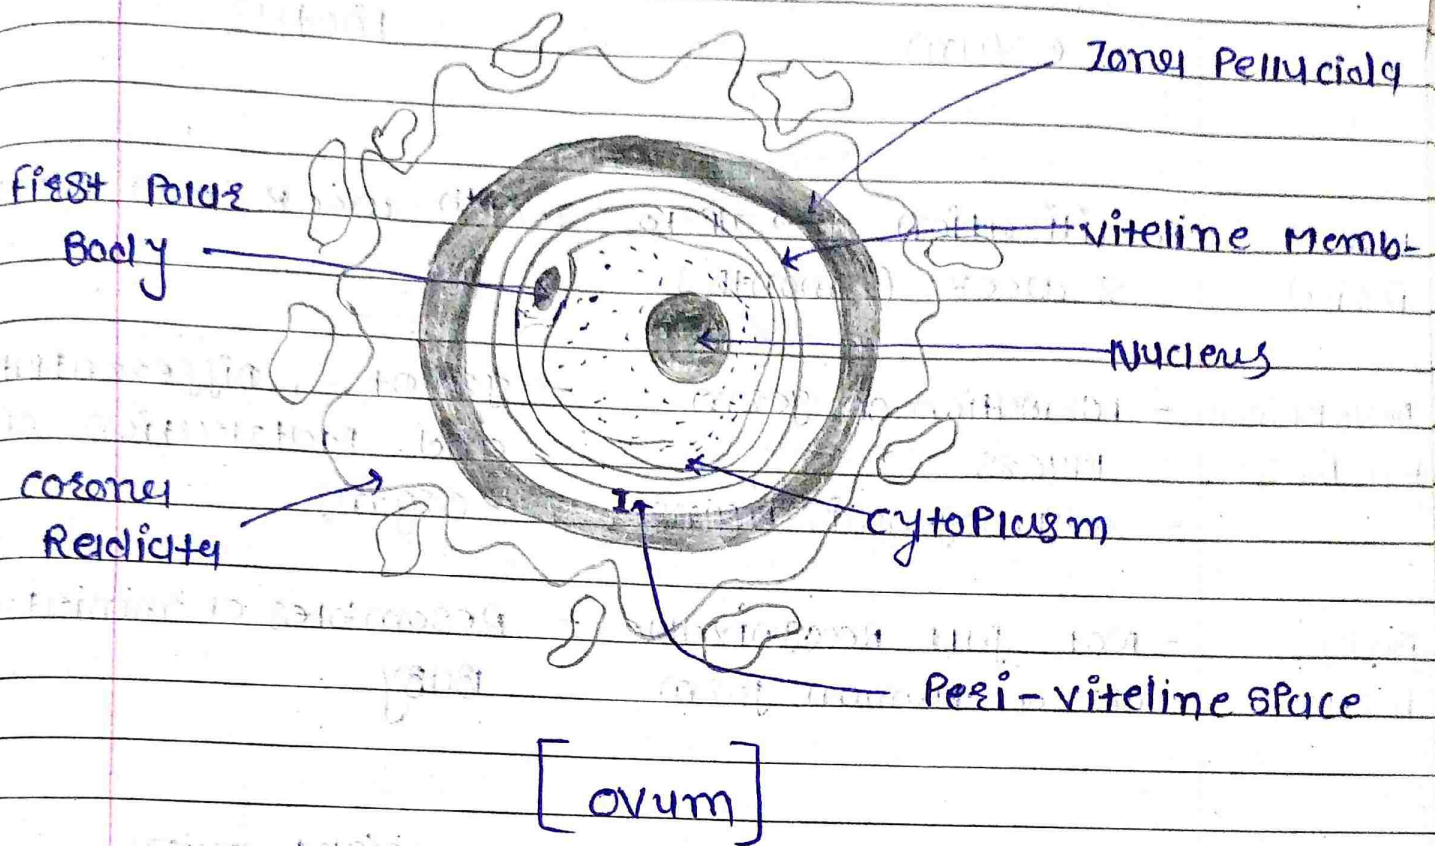 Zona Pellucida
First Polar
Body
Viteline Memb-
Nucleus
Corona
Radiata
Cytoplasm
Peri-viteline space
[ovum]